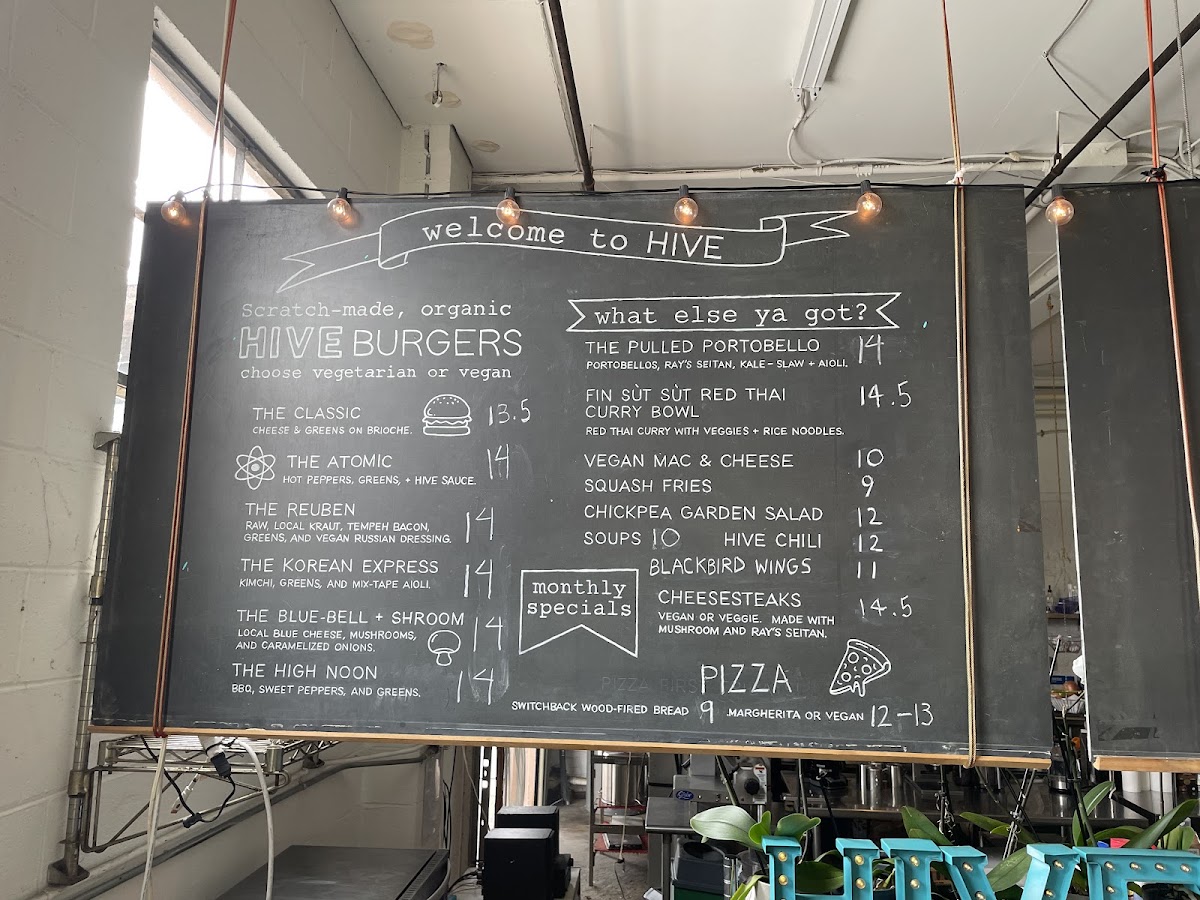 welcome to HIVE
Scratch-made, organic
HIVE BURGERS
choose vegetarian or vegan
THE CLASSIC 13.5
CHEESE & GREENS ON BRIOCHE.
THE ATOMIC 14
HOT PEPPERS, GREENS, + HIVE SAUCE.
THE REUBEN 14
RAW, LOCAL KRAUT, TEMPEH BACON,
GREENS, AND VEGAN RUSSIAN DRESSING.
THE KOREAN EXPRESS 14
KIMCHI, GREENS, AND MIX-TAPE AIOLI.
THE BLUE-BELL + SHROOM 14
LOCAL BLUE CHEESE, MUSHROOMS,
AND CARAMELIZED ONIONS.
THE HIGH NOON 14
BBQ, SWEET PEPPERS, AND GREENS.
what else ya got?
THE PULLED PORTOBELLO 14
PORTOBELLOS, RAY'S SEITAN, KALE-SLAW + AIOLI.
FIN SÙT SÙT RED THAI 14.5
CURRY BOWL
RED THAI CURRY WITH VEGGIES + RICE NOODLES.
VEGAN MAC & CHEESE 10
SQUASH FRIES 9
CHICKPEA GARDEN SALAD 12
SOUPS 10 HIVE CHILI 12
BLACKBIRD WINGS 11
monthly
specials
CHEESESTEAKS 14.5
VEGAN OR VEGGIE. MADE WITH
MUSHROOM AND RAY'S SEITAN.
PIZZA
SWITCHBACK WOOD-FIRED BREAD 9 .MARGHERITA OR VEGAN 12-13